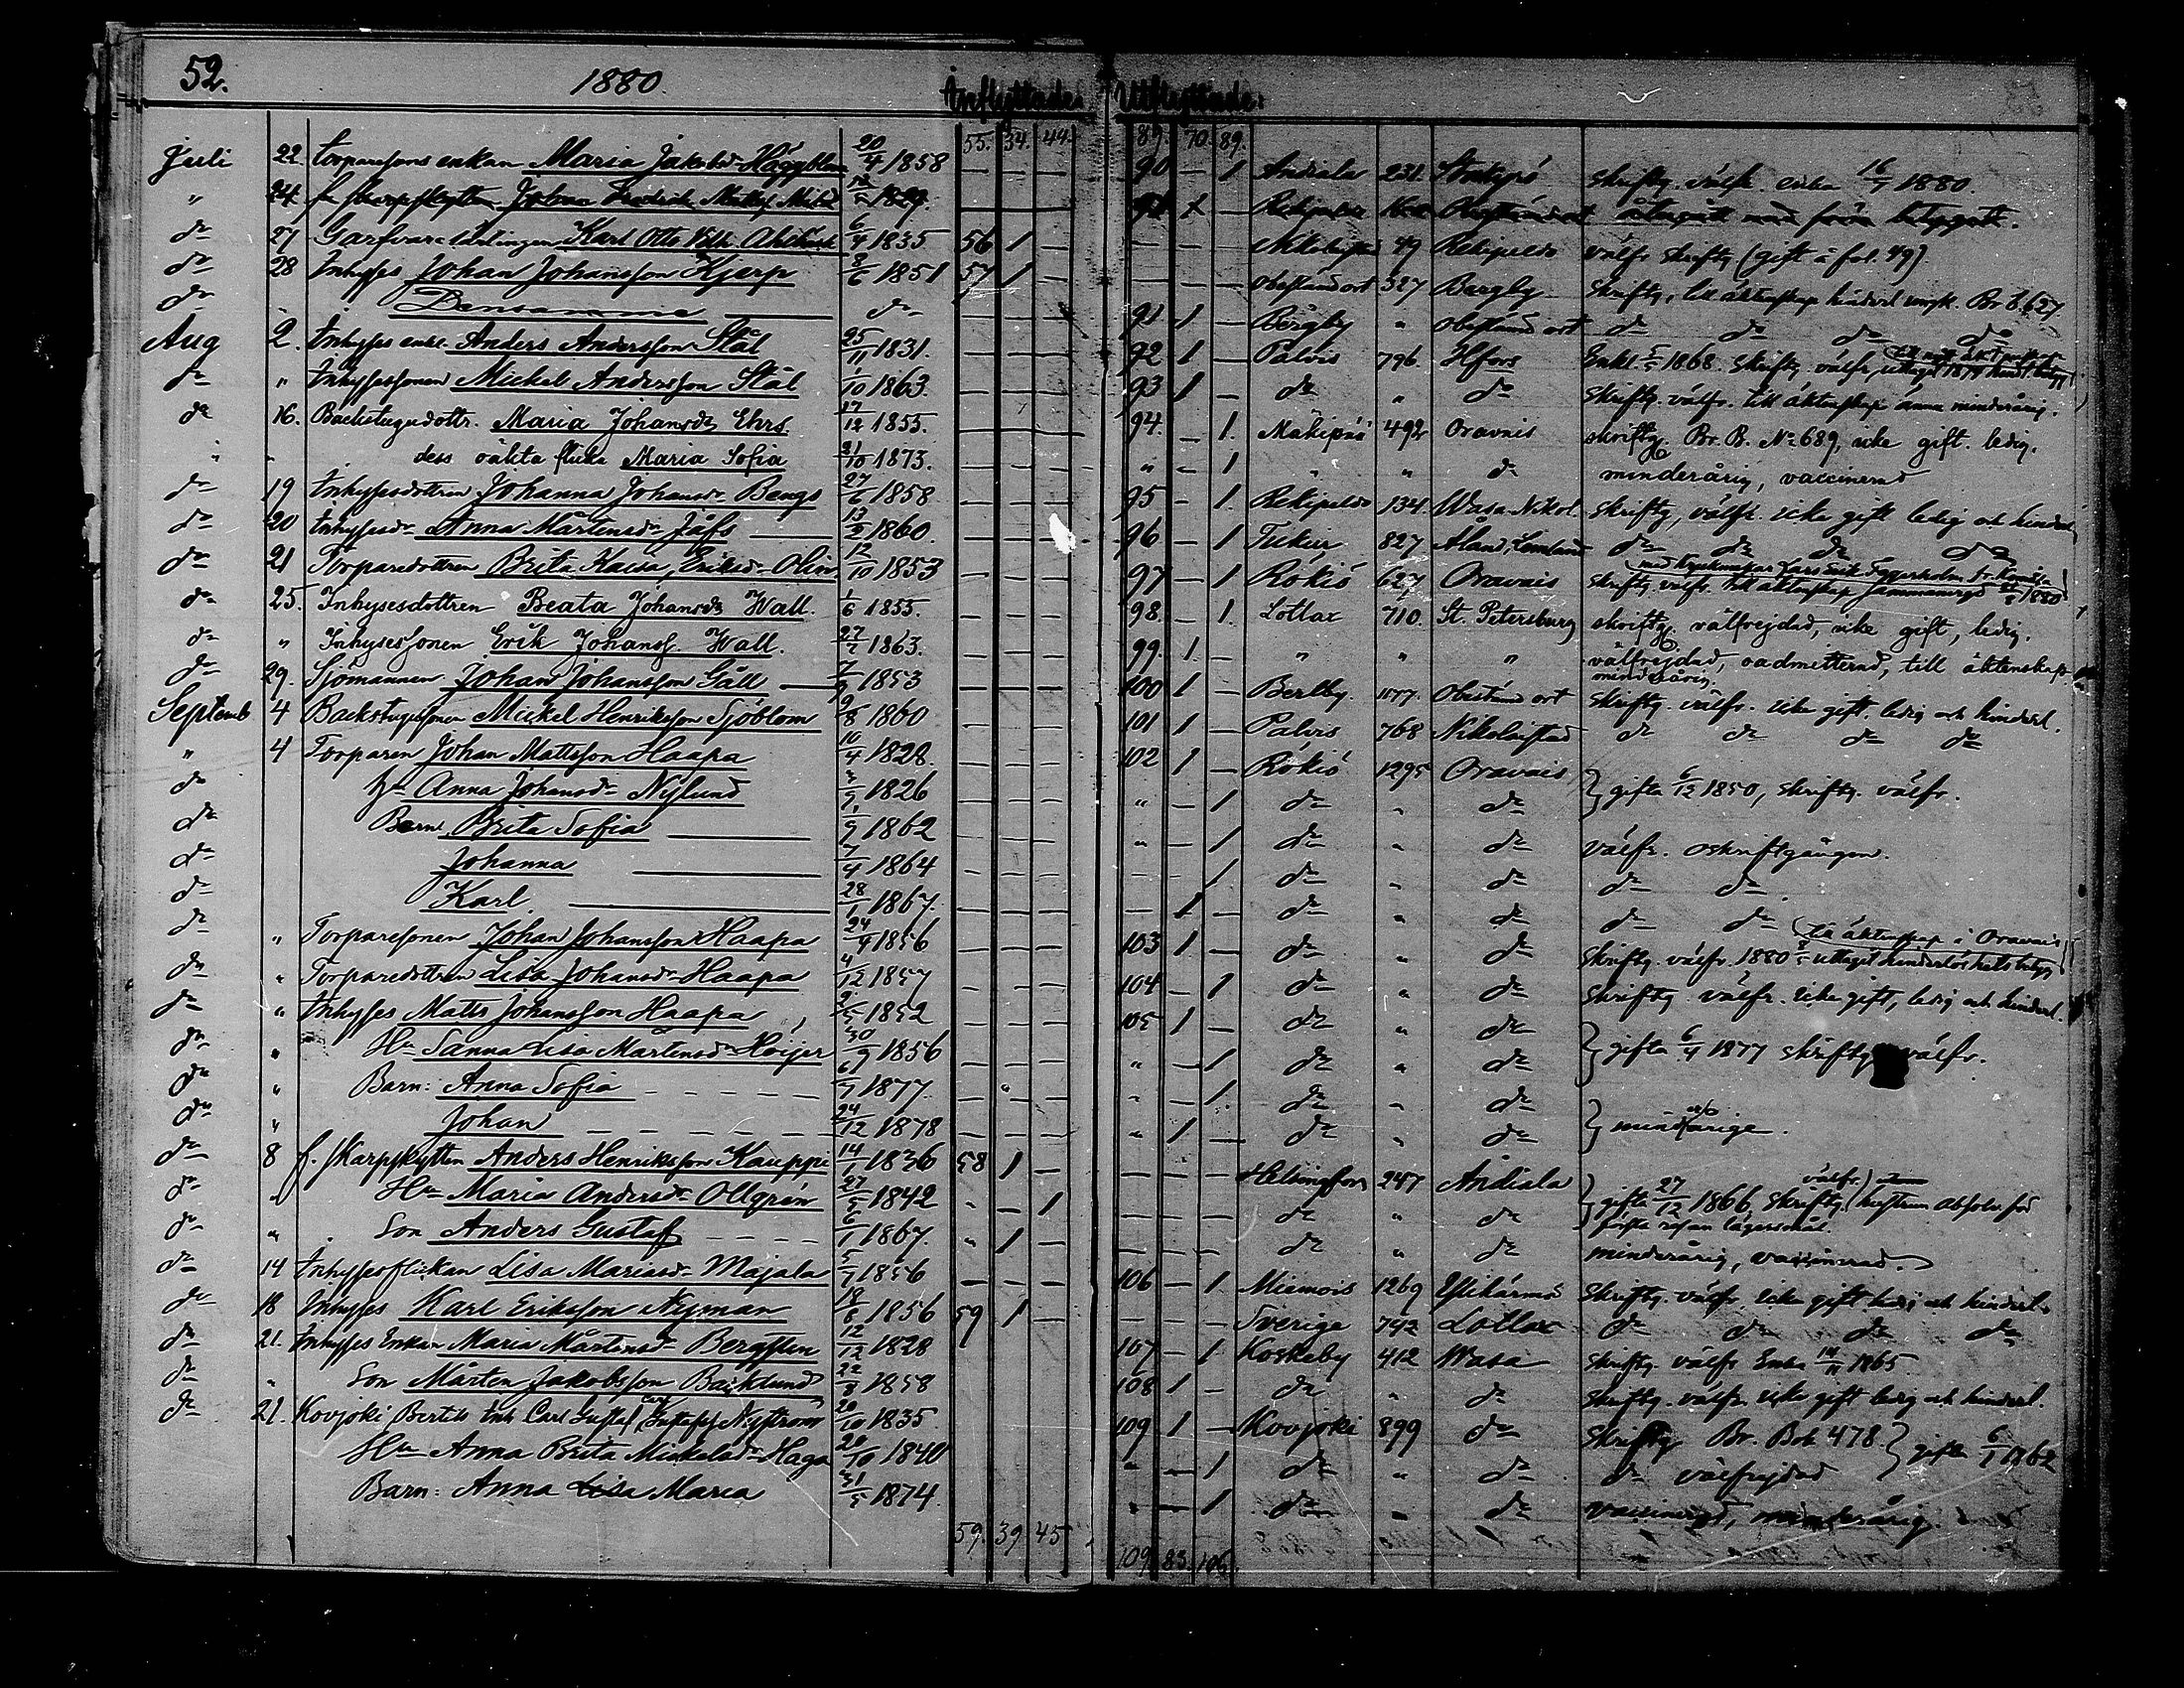 52. 1880. Inflyttade: Utflyttade:
55. 34. 44. 89. 70. 89.
Juli 22. Torparesons enkan Maria Jakobsdr Häggblom 20/4 1858 — — — 90 — 1 Andiala 231 skriftg. välfr. enka 16/7 1880.
" 24 f. skarpskytten Johan Fredrik Matts. — — — 91 1 — återgått med från betyget.
dr 27 Garfvarelärlingen Karl Otto 6/4 1835 56 1 — — — — Nikolaistad 49 Rekipeldo välfr. skriftg (gift â fol. 49)
dr 28 Inhyses Johan Johansson Kjerp 8/6 1851 57 1 — — — — obestämd ort 327 Bergby skriftg, till äktenskap hinderl. Br. B. 627.
dr " Densamme — dr — — — 91 1 — Bergby " obestämd ort dr dr dr dr
Aug 2. Inhyses enkl. Anders Andersson Stål 25/11 1831. — — — 92 1 — Palvis 796. Hfors Enkl. 5/5 1868. skriftg välfr, uttaget 1879
dr " Inhysessonen Mickel Andersson Stål 1/10 1863. — — — 93 1 — dr " dr Skriftg. välfr. till äktenskap ännu minderårig.
dr 16. Backstugudottr. Maria Johansdr Ehrs 17/12 1855. — — — 94. — 1. Mäkipää 492 Oravais skriftg. Br. B. No 689, icke gift. ledig.
" " dess oäkta flicka Maria Sofia 21/10 1873. — — — " — 1 " " dr minderårig, vaccinerad
dr 19 Inhysesdottren Johanna Johansdr Bengs 27/6 1858 — — — 95 — 1. Rekipeldo 134 Wasa Nikol. skriftg, välfr. icke gift ledig och hinderl.
dr 20 Inhysesdr Anna Mårtensdr Jåfs 13/2 1860. — — — 96 — 1 Tukur 827 Åland, Lemland dr dr dr dr
dr 21 Torparedottren Brita Kaisa Eriksdr Olin 12/10 1853 — — — 97 — 1 Rökiö 627 Oravais skriftg välfr. till äktenskap sammanvigd 1880
dr 25. Inhysesdottren Beata Johansdr Wall. 1/6 1855. — — — 98. — 1. Lotlax 710. St. Petersburg skriftg, välfrejdad, icke gift, ledig.
dr " Inhysessonen Erik Johanss. Wall. 27/7 1863. — — — 99. 1. — " " " välfrejdad, oadmitterad, till äktenskap minderårig.
dr 29. Sjömannen Johan Johansson Gäll 1853 — — — 100 1 — Bertby. 1177. Obestämd ort skriftg. välfr. icke gift. ledig och hinderl.
Septemb 4 Backstugusonen Mickel Henriksson Sjöblom 9/8 1860 — — — 101 1 — Palvis 768 Nikolaistad dr dr dr dr
" 4 Torparen Johan Mattsson Haapa 10/4 1828. — — — 102 1 — Rökiö 1295 Oravais } gifta 6/12 1850, skriftg. välfr.
dr Hu Anna Johansdr Nylund 1826 — — — " — 1 dr " dr
dr Barn Brita Sofia 1/9 1862 — — — " — 1 dr " dr välfr. oskriftgången.
dr Johanna 7/4 1864 — — — 1 dr " dr dr dr
dr Karl 28/1 1867. — — — — 1 — dr " dr dr dr
dr " Torparesonen Johan Johansson Haapa 24/9 1856 — — — 103 1 — dr " dr skriftg. välfr. 1880 uttagit hinderlöshetsbetyg till äktenskap i Oravais
dr " Torparedottren Lisa Johansdr Haapa 4/12 1857 — — — 104 — 1 dr " dr skriftg. välfr. icke gift, ledig och hinderl.
dr " Inhyses Matts Johansson Haapa 2/5 1852 — — — 105 1 — dr " dr } gifta 6/4 1877 skriftg välfr.
dr " Hu Sanna Lisa Mårtensdr Höijer 30/9 1856 — — — " — 1 dr " dr
dr " Barn: Anna Sofia 6/7 1877. — " — " — 1 dr " dr } minderårige.
dr " Johan 24/12 1878 — — — " 1 — dr " dr
dr 8 f. Skarpskytten Anders Henriksson Kauppi 14/1 1836 58 1 — — — — Helsingfors 247 Andiala } gifta 27/12 1866, skriftg. välfr.
dr " Hu Maria Andersdr Ollqrén 27/5 1842 " — 1 dr " dr
dr " Son Anders Gustaf 6/1 1867. " 1 — — — — dr " dr minderårig, vaccinerad.
dr 14 Inhysesflickan Lisa Mariasdr Majala 5/7 1856 — — — 106 — 1 Miemois 1269 Ylikärmä Skriftg. välfr. icke gift ledig och hinderl.
dr 18 Inhyses Karl Eriksson Nyman 18/8 1856 59 1 — — — — Sverige 742 Lotlax dr dr dr dr
dr 21. Inhyses Enkan Maria Mårtensdr Bergsten 12/12 1828 107 — 1 Koskeby 412 Wasa skriftg. välfr Enka 14/11 1865
dr " Son Mårten Jakobsson Backlund 22/8 1858 108 1 — dr " dr skriftg. välfr. icke gift ledig och hinderl.
dr 21. Kovjoki Bertils Inh. Carl Gustaf Gustafss. Nyström 20/10 1835. 109 1 — Kovjoki 899 dr Skriftg Br. Bok 478. } gifta 6/1 1862
Hu Anna Brita Mickelsdr Haga 20/10 1840 " — 1 dr " dr dr välfrejdad
Barn: Anna Lisa Maria 31/5 1874. " — 1 dr " dr vaccinerad, minderårig.
59. 39 45 109. 83. 106.